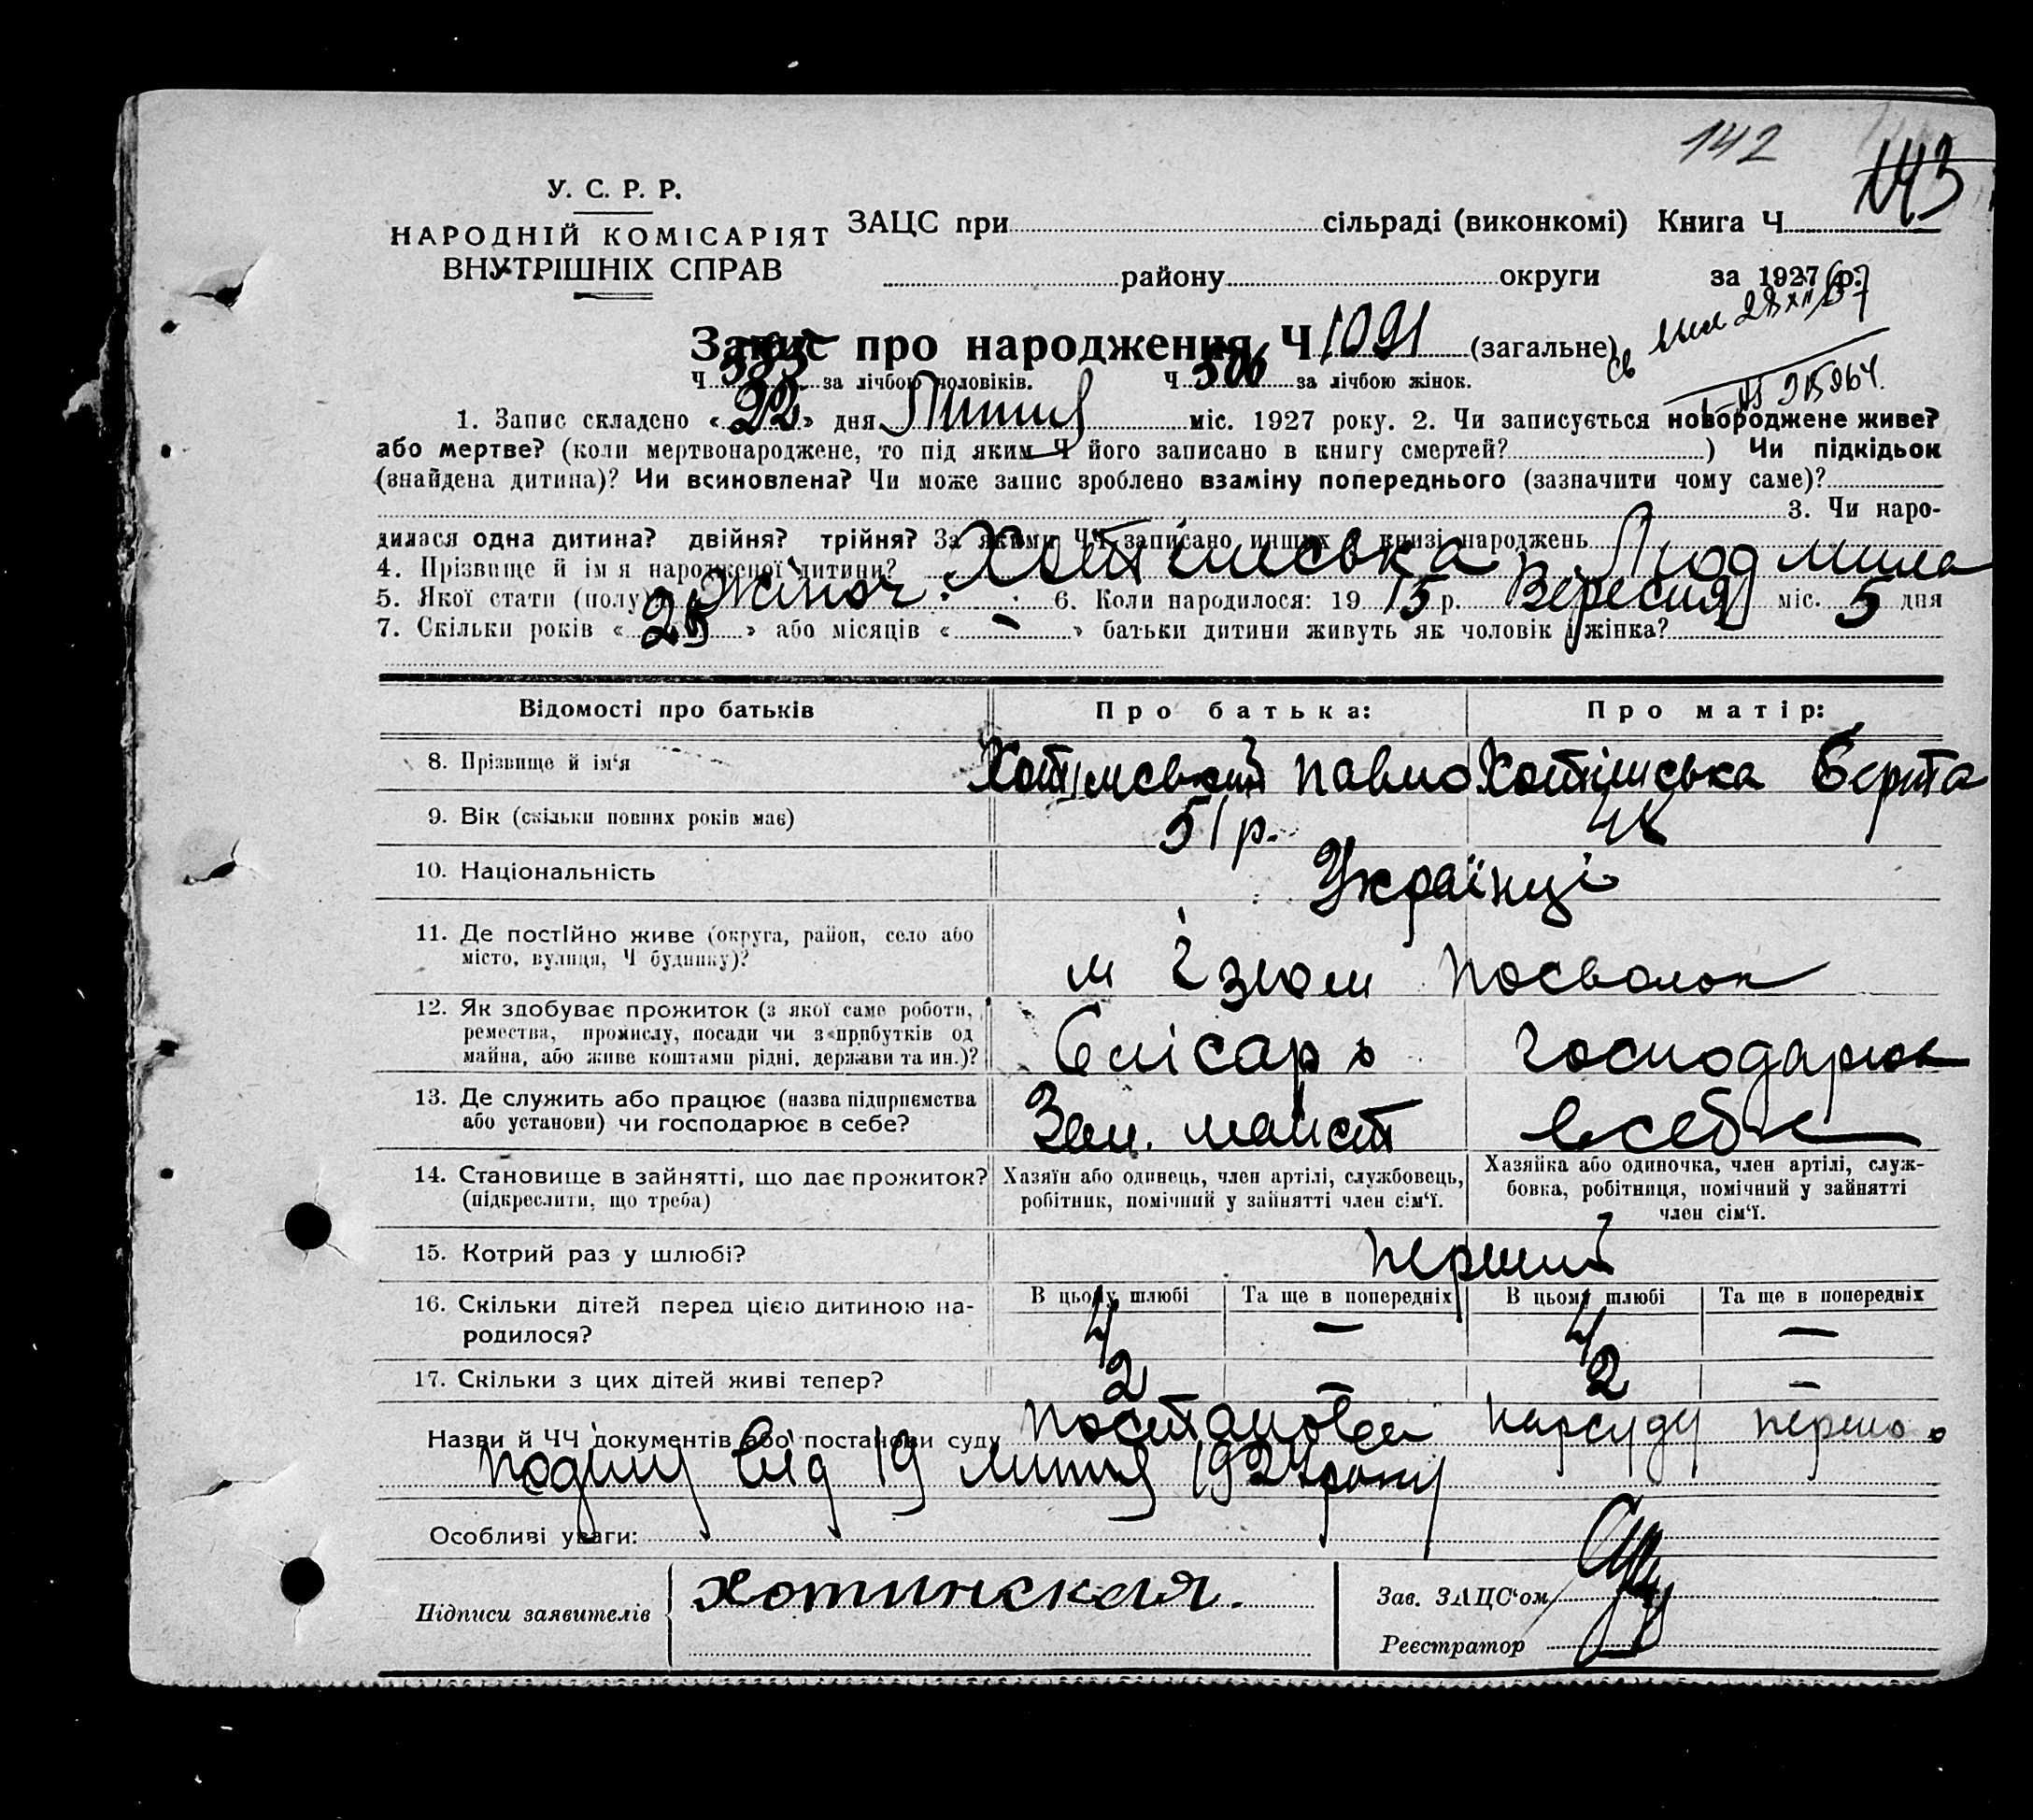 142
143
У. С. Р. Р.
НАРОДНІЙ КОМІСАРІЯТ
ВНУТРІШНІХ СПРАВ
ЗАЦС при сільраді (виконкомі) Книга Ч
району округи за 1927 р.
28/XII 67
Запис про народження Ч 1091 (загальне)
Ч 585 за лічбою чоловіків. Ч 506 за лічбою жінок.
1. Запис складено «22» дня Липня міс. 1927 року. 2. Чи записується новороджене живе?
або мертве? (коли мертвонароджене, то під яким Ч його записано в книгу смертей? ) Чи підкідьок
(знайдена дитина)? Чи всиновлена? Чи може запис зроблено взаміну попереднього (зазначити чому саме)?
3. Чи наро-
дилася одна дитина? двійня? трійня? За якими ЧЧ записано инших в книзі народжень
4. Прізвище й ім'я народженої дитини? Хотімська Людмила
5. Якої стати (полу) Жіноч. 6. Коли народилося: 19 15 р. Вересня міс. 5 дня
7. Скільки років «25» або місяців « — » батьки дитини живуть як чоловік і жінка?
Відомості про батьків
Про батька:
Про матір:
8. Прізвище й ім'я
Хотімський Павло
Хотімська Берта
9. Вік (скільки повних років має)
51 р.
48
10. Національність
Українці
11. Де постійно живе (округа, район, село або
місто, вулиця, Ч будинку)?
м Ізюм
12. Як здобуває прожиток (з якої саме роботи,
ремества, промислу, посади чи з прибутків од
майна, або живе коштами рідні, держави та ин.)?
Слісарь
господарює
13. Де служить або працює (назва підприємства
або установи) чи господарює в себе?
в себе
14. Становище в зайнятті, що дає прожиток?
(підкреслити, що треба)
Хазяїн або одинець, член артілі, службовець,
робітник, помічний у зайнятті член сім'ї.
Хазяйка або одиночка, член артілі, служ-
бовка, робітниця, помічний у зайнятті
член сім'ї.
15. Котрий раз у шлюбі?
перший
16. Скільки дітей перед цією дитиною на-
родилося?
В цьому шлюбі Та ще в попередніх В цьому шлюбі Та ще в попередніх
4 — 4 —
17. Скільки з цих дітей живі тепер?
2 — 2 —
Назви й ЧЧ документів або постанови суду Постанова нарсуду першо
поділу від 19 липня 1927 року
Особливі уваги:
Підписи заявителів
хотинская.
Зав. ЗАЦС'ом
Реєстратор